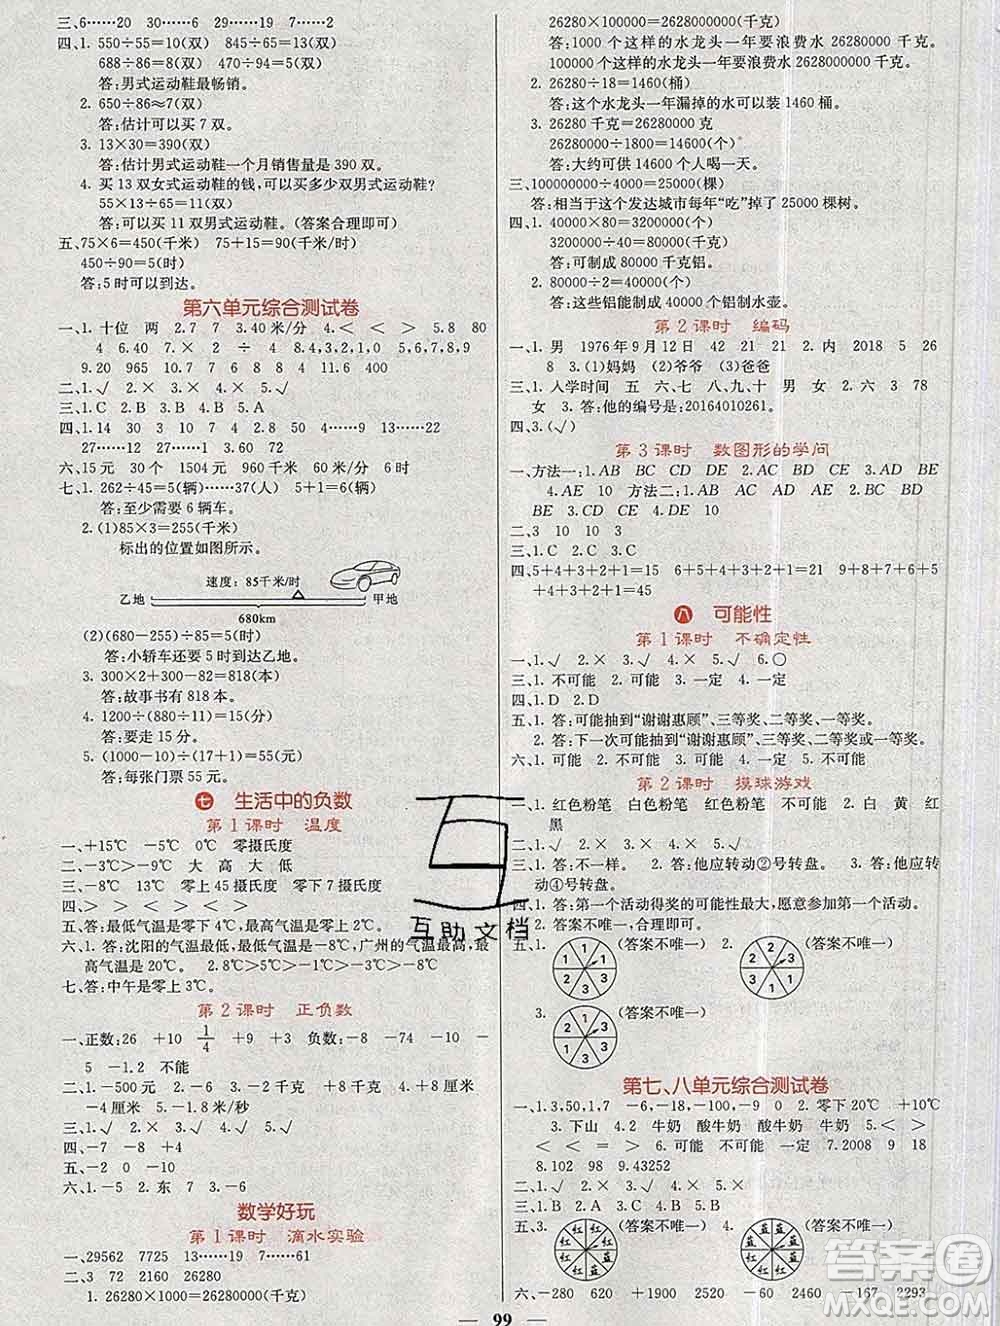 三、6……20　30……6　29……19　7……51
四、1. 550÷55=10(双)　845÷65=13(双)
688÷86=8(双)　470÷94=5(双)
答:男式运动鞋最畅销。
2. 650÷86≈7(双)
答:估计可以买 7 双。
3. 13×30=390(双)
答:估计男式运动鞋一个月销售量是 390 双。
4. 买 13 双女式运动鞋的钱,可以买多少双男式运动鞋?
55×13÷65=11(双)
答:可以买 11 双男式运动鞋。(答案合理即可)
五、75×6=450(千米)　75+15=90(千米/时)
450÷90=5(时)
答:5 时可以到达。
第六单元综合测试卷
一、1. 十位　两　2.7　7　3.40 米/分　4.<　<　>　5.8　80
4　6.40　×　2　÷　4　8.4,3,2,1,0　4,5,6,7,8,9
9.20　965　10.7　7　11.360　120
二、1.√　2.×　3.×　4.×　5.√
三、1.C　2.A　3.B　4.B　5.A
四、1.14　30　3　10　7　4　2.50　4……54　9……13
27……12　27……1　3.60　72
六、15 元　30 个　1504 元　960 千米　60 千米/分　6 时
七、1. 262÷45=5(辆)……37(人)　5+1=6(辆)
答:至少需要 6 辆车。
2. (1)85×3=255(千米)
标出的位置如图所示。
速度：85千米/时
乙地　甲地
680km
(2)(680-255)÷85=5(时)
答:小轿车还要 5 时到达乙地。
3. 300×2+300-82=818(本)
答:故事书有 818 本。
4. 1200÷(880÷11)=15(分)
答:要走 15 分。
5. (1000-10)÷(17+1)=55(元)
答:每张门票 55 元。
七　生活中的负数
第 1 课时　温度
一、+15℃　-5℃　0℃　零摄氏度
二、-3℃>-9℃　大　高　大　低
三、-8℃　13℃　零上 45 摄氏度　零下 7 摄氏度
四、>　>　<　>　<　>
五、答:最低气温是零下 4℃,最高气温是零上 5℃。
六、1. 答:沈阳的气温最低,最低气温是-8℃,广州的气温最高,最
高气温是 20℃。　2.8℃>5℃>-1℃>-2℃>-8℃
七、答:中午是零上 3℃。
第 2 课时　正负数
一、正数:26　+10　1/4　+9　+3　负数:-8　-74　-10　-
5　-1.2　不能
二、1.-500 元　2.+20 元　3.-2 千克　+2 千克　0 千克　4.
-4 厘米　5.-8 米/秒
三、1.√　2.×　3.×　4.√　5.√
四、-7　-8　+4
五、-2　0　-10
六、1.-5　2.东　7　3.-6
数学好玩
第 1 课时　滴水实验
一、29562　7725　13……19　7……61
二、3　72　2160　26280
1. 26280×1000=26280000(千克)
26280×100000=2628000000(千克)
答:1000 个这样的水龙头一年要浪费水 26280000 千克。
100000 个这样的水龙头一年要浪费水 2628000000 千克。
2. 26280÷18=1460(桶)
答:这个水龙头一年漏掉的水可以装 1460 桶。
3. 26280 千克=26280000 克
26280000÷1800=14600(个)
答:大约可供 14600 个人喝一天。
三、100000000÷4000=25000(棵)
答:相当于这个发达城市每年“吃”掉了 25000 棵树。
四、1. 40000×80=3200000(个)
3200000÷40=80000(千克)
答:可制成 80000 千克铝。
2. 80000÷2=40000(个)
答:这些铝能制成 40000 个铝制水壶。
第 2 课时　编码
一、1. 男　1976 年 9 月 12 日　42　21　21　2. 内　2018　5　26
8　3. (1)妈妈　(2)爷爷　(3)爸爸
三、1. 入学时间　五　六、七　八、九、十　男　女　2. 06　3　78
女　3. 答:他的编号是:20164010261。
四、3.(√)
第 3 课时　数图形的学问
一、方法一:1.AB　BC　CD　DE　2.AC　BD　CE　3.AD　BE
4.AE　10　方法二:1.AB　AC　AD　AE　2.BC　BD
BE　3.CD　CE　4.DE　10
二、3　10　10　3
三、1.C　2.C　3.C　4.C
四、5+4+3+2+1=15　6+5+4+3+2+1=21　9+8+7+6+5
+4+3+2+1=45
八　可能性
第 1 课时　不确定性
一、1.√　2.×　3.√　4.×　5.√　6.○
三、1. 不可能　2. 可能　3. 一定　4. 一定
四、1.D　2.D
五、1. 答:可能抽到“谢谢惠顾”、三等奖、二等奖、一等奖。
2. 答:下一次可能抽到“谢谢惠顾”、三等奖、二等奖或一等奖。
六、1. 可能　2. 不可能　3. 可能　4. 可能
第 2 课时　摸球游戏
一、1. 红色粉笔　白色粉笔　红色粉笔　不可能　2. 白　黄　红
黑
二、1.√　2.×　3.×　4.×
三、1. 答:不一样。　2. 答:他应转动②号转盘。　3. 答:他应转
动④号转盘。
四、1. 答:第一个活动得奖的可能性最大,愿意参加第一个活动。
2. 答案不唯一,合理即可。
五、1.　(答案不唯一)　2.　(答案不唯一)
3.　(答案不唯一)
第七、八单元综合测试卷
一、1. 3,50,1,7　-6,-18,-100,-9　0　2. 零下 20℃　+10℃
3. 下山　4.2　牛奶　酸牛奶　酸牛奶　牛奶　5.<　>
<　<　=　>　6. 可能　不可能　一定　7.2008　9　18
8.102　98　9.43252
二、1.√　2.√　3.√　4.×　5.×
三、1.B　2.A　3.C　4.A　5.C
五、3.　(答案不唯一)　4.　(答案不唯一)
六、-280　620　+1900　2520　-450　2460　-167　2293
互助文档
答案圈
MXQE.COM
— 99 —